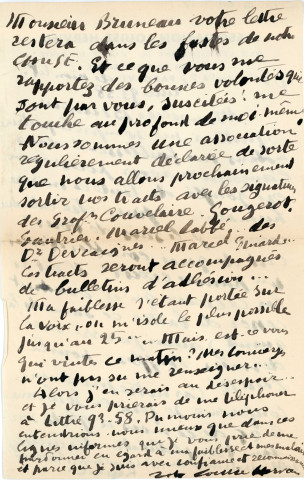 Monsieur Bruneau votre lettre
restera dans les fastes de notre
Et ce que vous me
rapportez des bonnes volontés que
sont par vous, suscitées! me
touche au profond de moi-même
Nous sommes une association
régulièrement déclarée de sorte
que nous allons prochainement
sortir nos tracts avec les signatures
des Prof.rs Couvelaire. Gougerot.
Marcel Labbé; des
Drs Devraignes. Marcel Pinard...
Ces tracts seront accompagnés
de bulletins d'adhésion...
Ma faiblesse s'étant portée sur
la voix, on m'isole le plus possible
jusqu'au 25... Mais est-ce vous
qui vintes ce matin? Mes concierges
n'ont pas su me renseigner...
Alors j'en serais au désespoir...
et je vous prierais de me téléphoner
à Littré 93-58. Du moins nous
entendrions-nous mieux que dans ces
lignes informes que je vous prie de me
pardonner en égard à ma faiblesse et mes malaises
et parce que je suis avec confiance et reconnaissance
votre Louise Hervieu